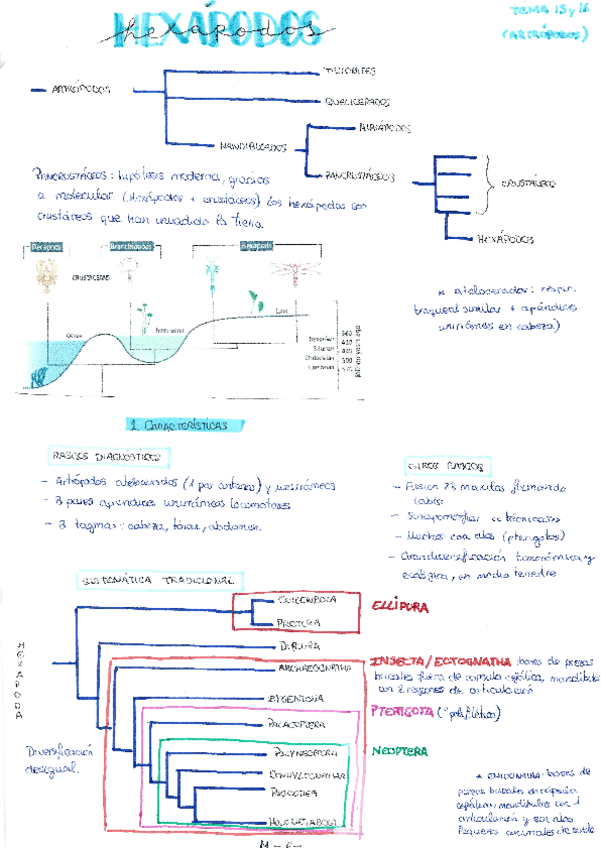 HEXÁPODOS
hexápodos
TEMA 15 y 16
(ARTRÓPODOS)
TRILOBITES
ARTRÓPODOS
QUELICERADOS
MIRIÁPODOS
MANDIBULADOS
PANCRUSTÁCEOS
CRUSTÁCEOS
HEXÁPODOS
Pancrustáceos: hipótesis moderna, gracias
a molecular (Hexápodos + crustáceos) los hexápodos son
crustáceos que han invadido la tierra.
Branchiopods
Hexapods
CRUSTACEANS
Ocean
Land
Devonian
Silurian
Ordovician
Cambrian
* Atelocerados: respir.
traqueal similar + apéndices
unirrámeos en cabeza)
1. CARACTERÍSTICAS
RASGOS DIAGNÓSTICOS
- Artrópodos atelocerados (1 par antenas) y unirrámeos
- 3 pares apéndices unirrámeos locomotores
- 3 tagmas: cabeza, tórax, abdomen.
OTROS RASGOS
- Fusión 2ª maxilas formando
labio
- Muchos con alas (pterigotos)
- Gran diversificación taxonómica y
ecológica, en medio terrestre
SISTEMÁTICA TRADICIONAL
HEXAPODA
COLLEMBOLA
PROTURA
ELLIPURA
DIPLURA
ARCHAEOGNATHA
ZYGENTOMA
PALAEOPTERA
POLYNEOPTERA
CONDYLOGNATHA
PSOCODEA
HOLOMETABOLA
INSECTA/ECTOGNATHA: bases de piezas
bucales fuera de cápsula cefálica, mandíbulas
con 2 regiones de articulación
PTERIGOTA (* polifilético)
NEOPTERA
Diversificación
desigual.
bases de
piezas bucales en cápsula
cefálica, mandíbulas con 1
articulación y son alas
Pequeños animales de suelo